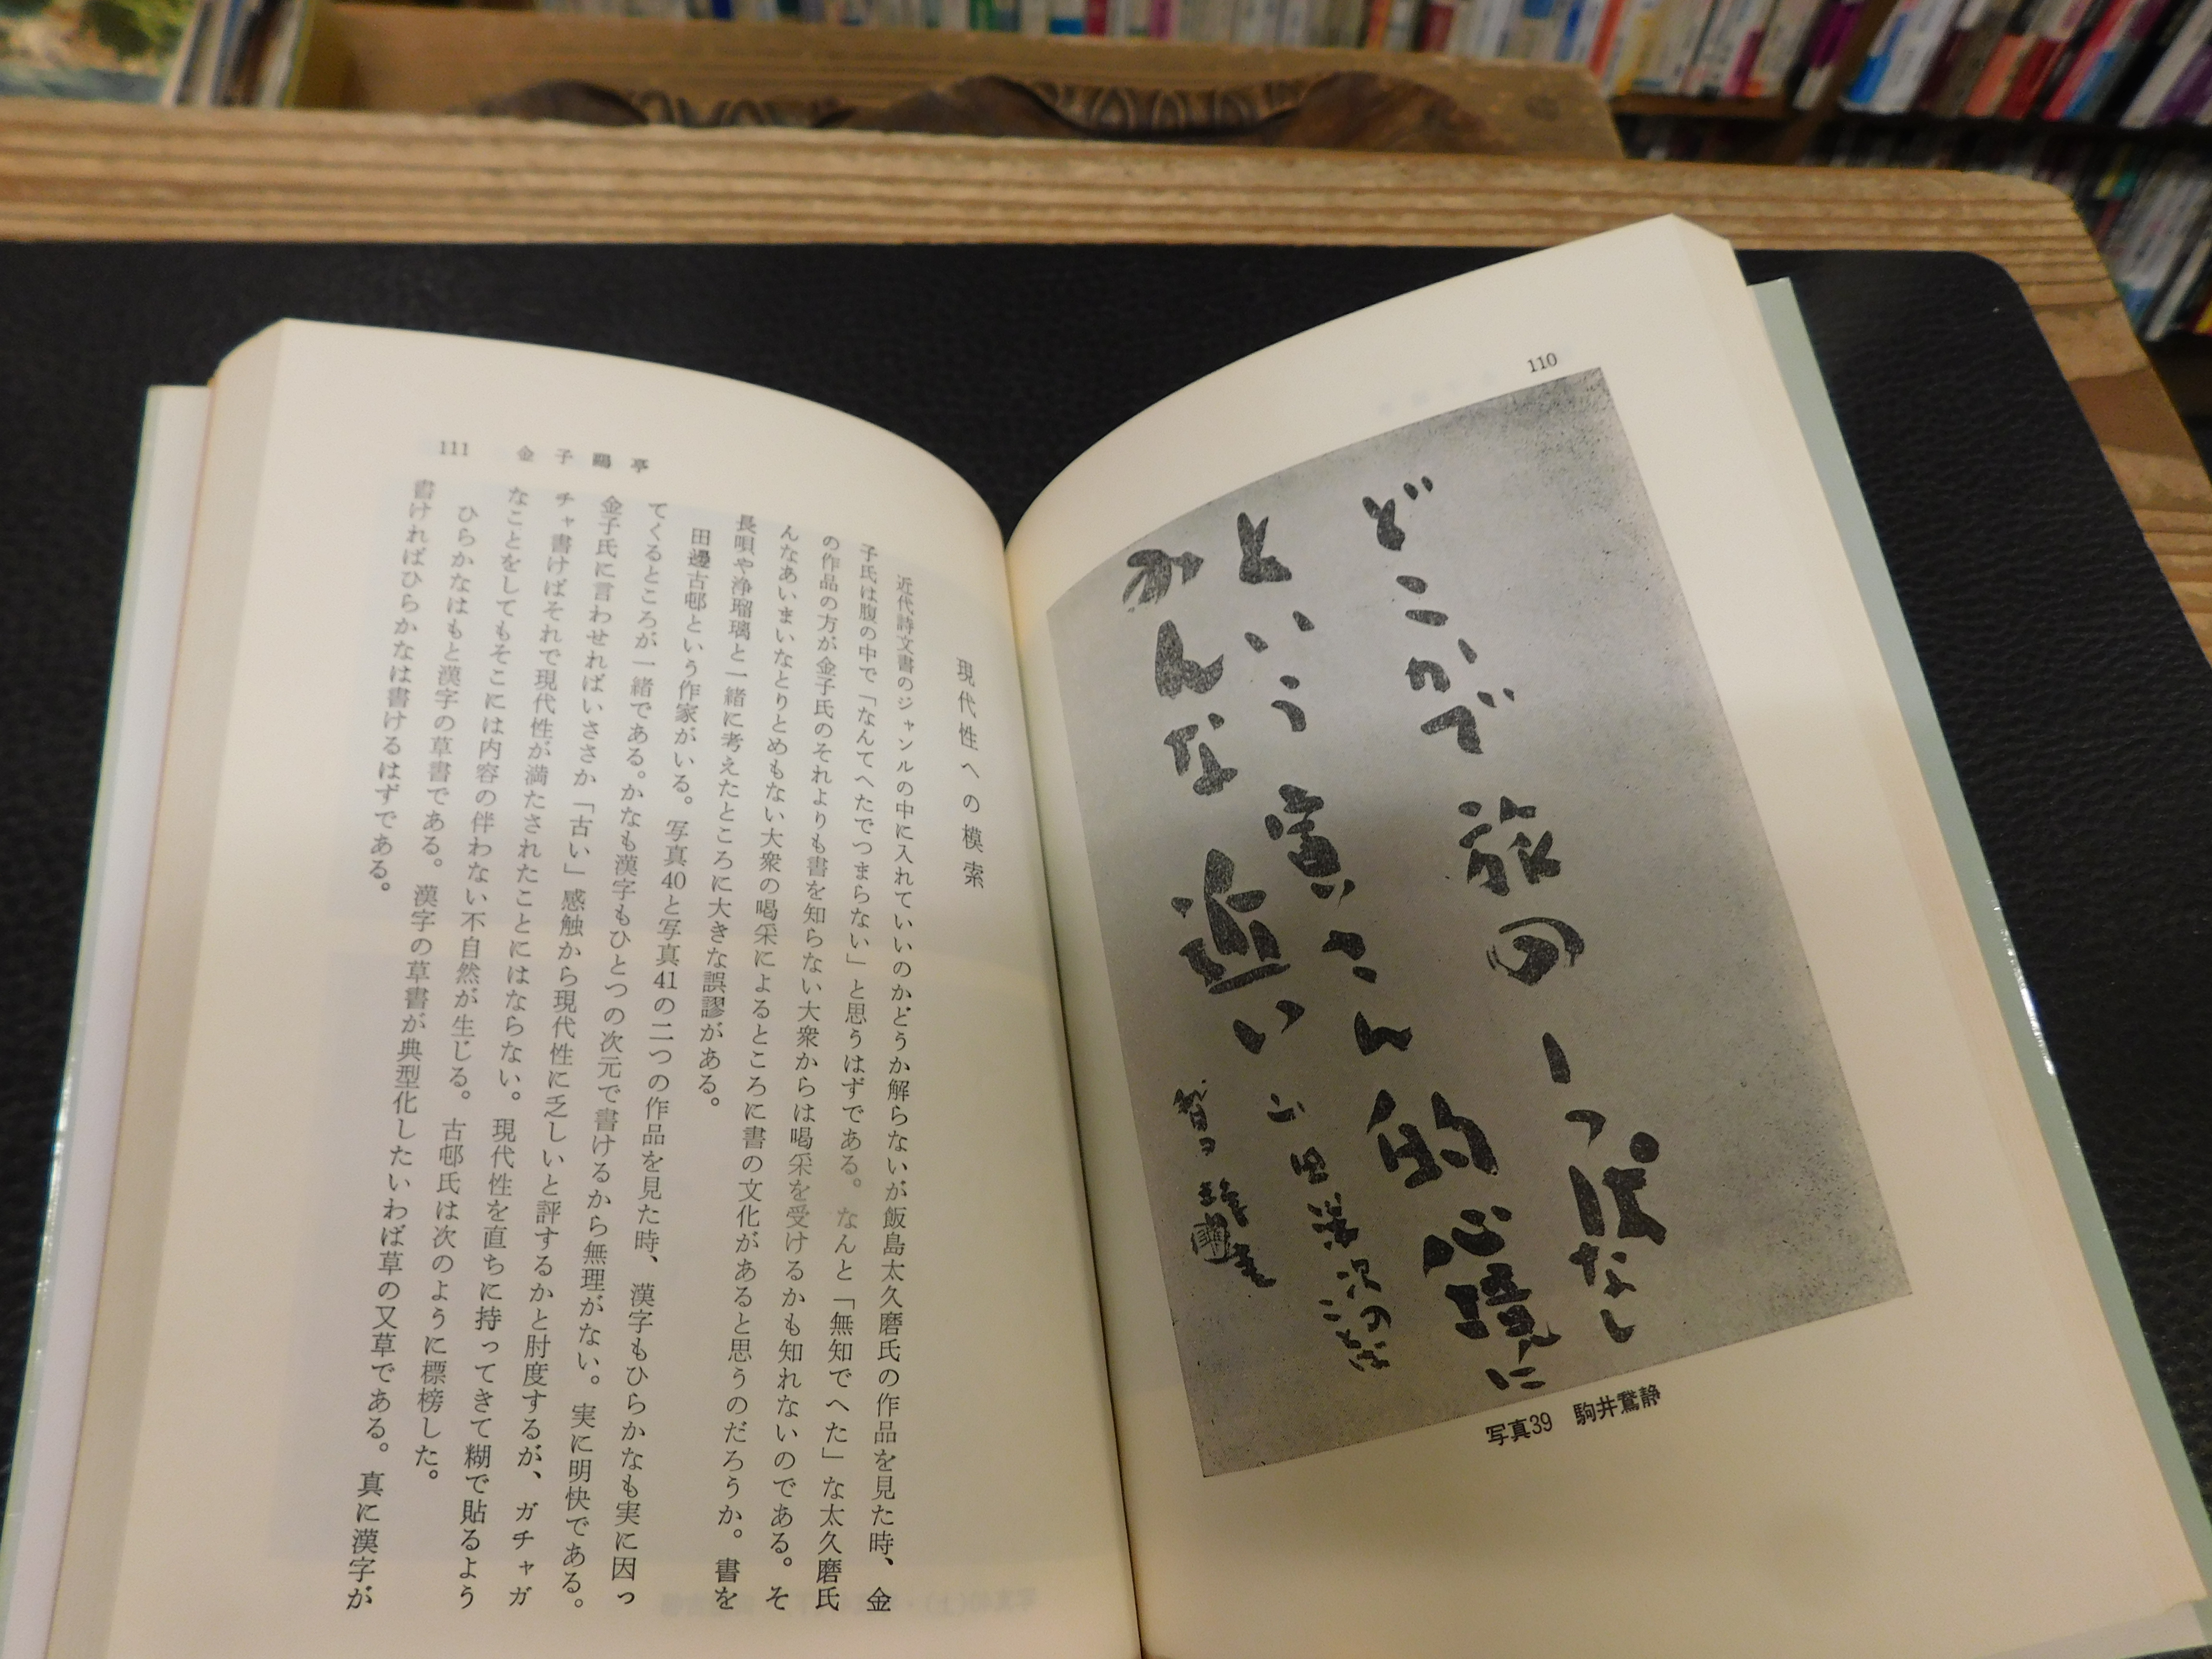 110
どこかで旅の一つ代なし
という寅さん的心境に
かんな近い
写真39　駒井鵞静
111　金子鷗亭
現代性への模索
近代詩文書のジャンルの中に入れていいのかどうか解らないが飯島太久磨氏の作品を見た時、金
子氏は腹の中で「なんてへたでつまらない」と思うはずである。なんと「無知でへた」な太久磨氏
の作品の方が金子氏のそれよりも書を知らない大衆からは喝采を受けるかも知れないのである。そ
んなあいまいなとりとめもない大衆の喝采によるところに書の文化があると思うのだろうか。書を
長唄や浄瑠璃と一緒に考えたところに大きな誤謬がある。
田邊古邨という作家がいる。写真40と写真41の二つの作品を見た時、漢字もひらかなも実に因っ
てくるところが一緒である。かなも漢字もひとつの次元で書けるから無理がない。実に明快である。
金子氏に言わせればいささか「古い」感触から現代性に乏しいと評するかと肘度するが、ガチャガ
チャ書けばそれで現代性が満たされたことにはならない。現代性を直ちに持ってきて糊で貼るよう
なことをしてもそこには内容の伴わない不自然が生じる。古邨氏は次のように標榜した。
ひらかなはもと漢字の草書である。漢字の草書が典型化したいわば草の又草である。真に漢字が
書ければひらかなは書けるはずである。